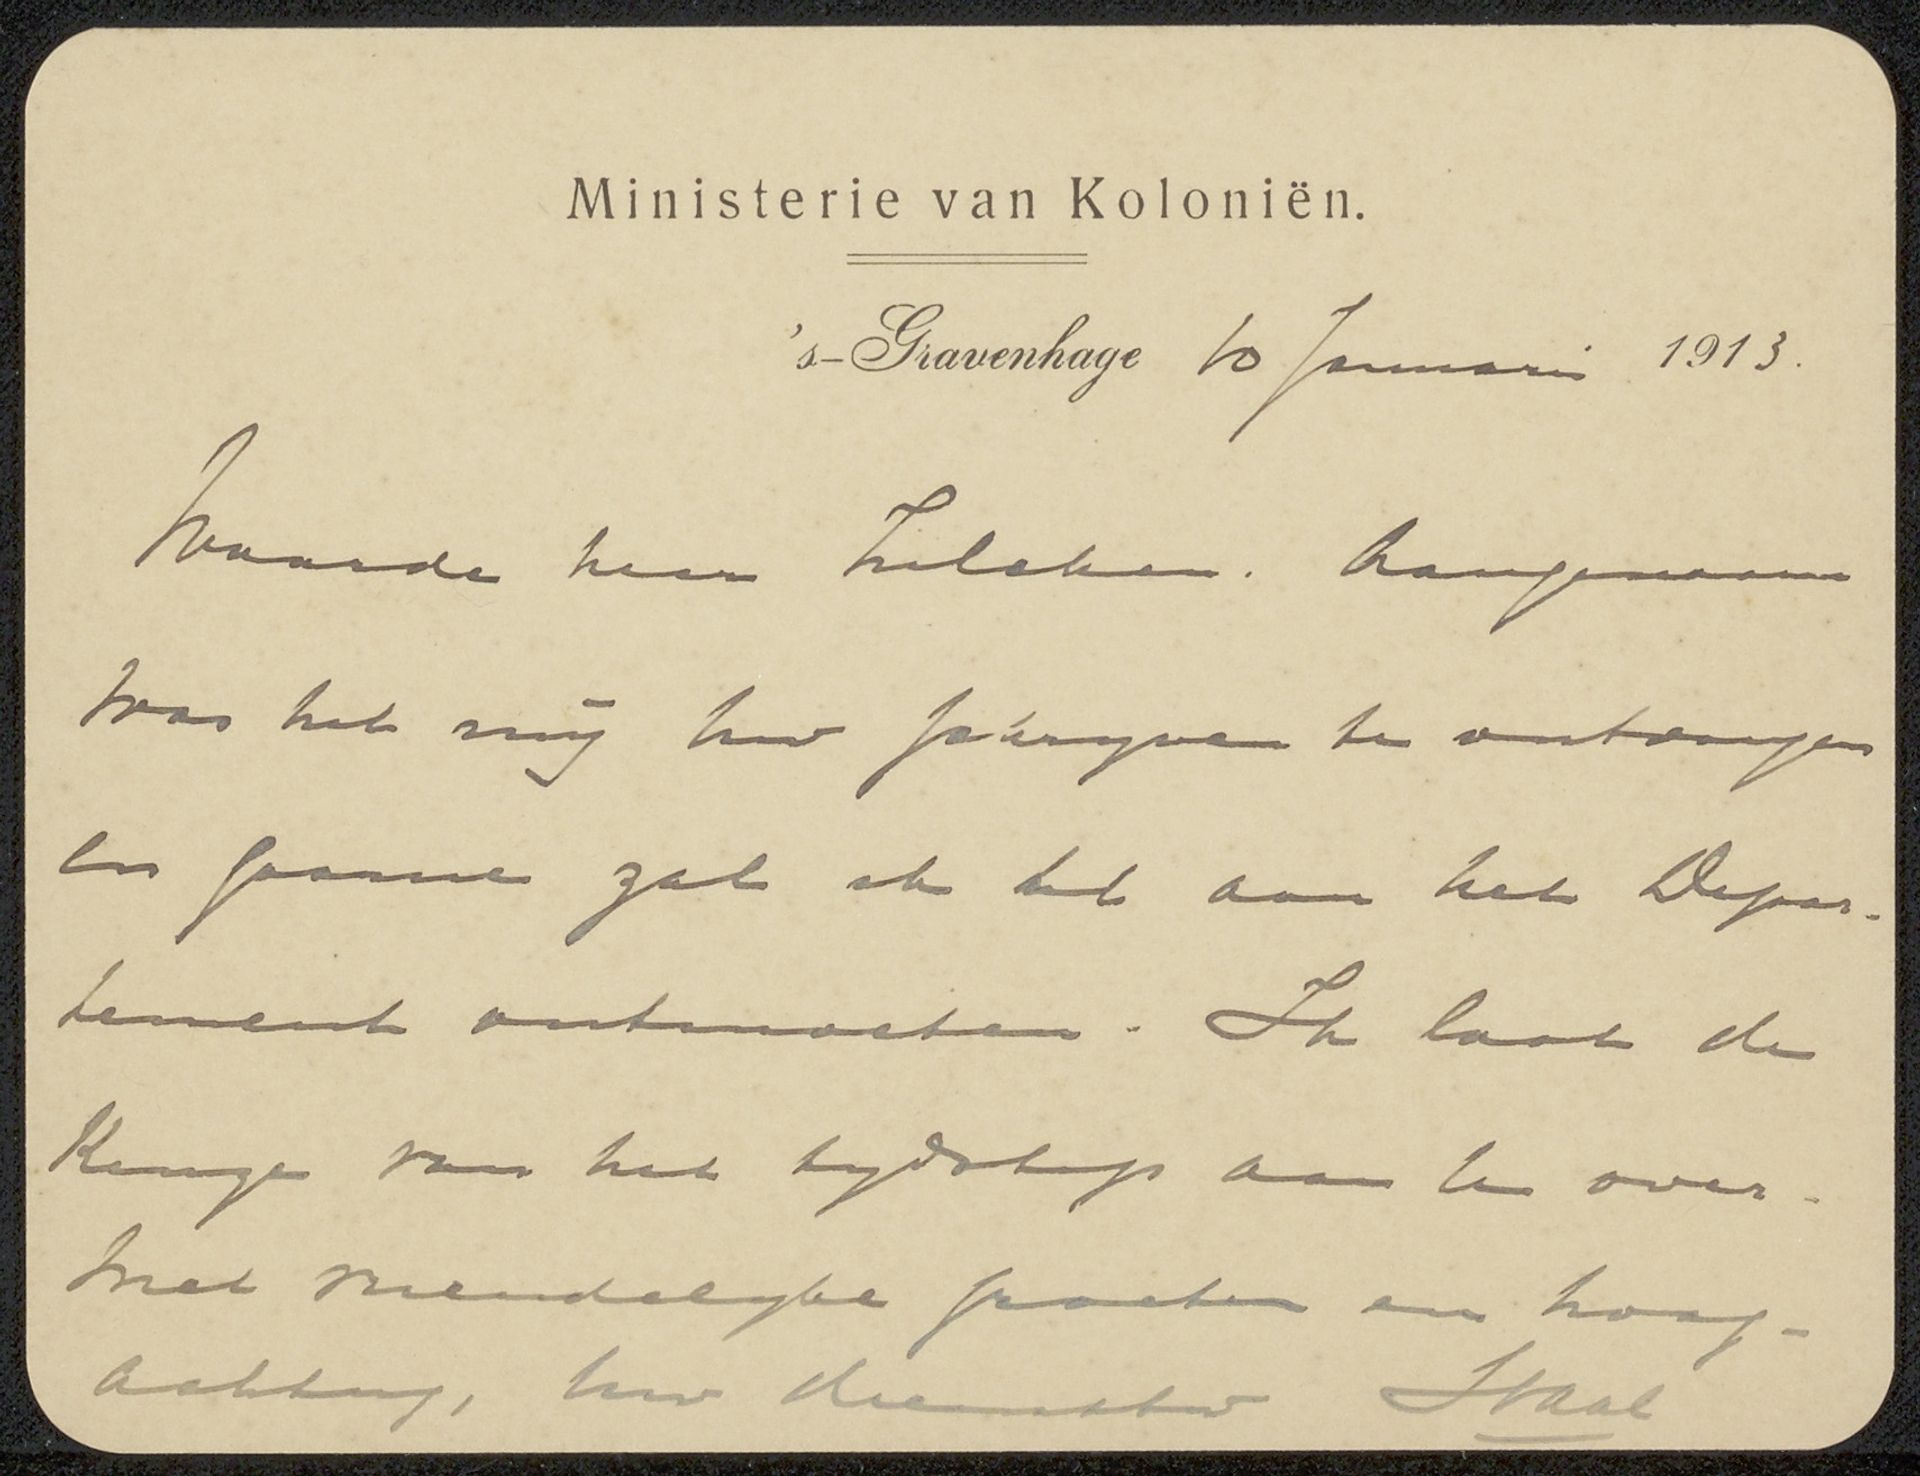 Ministerie van Koloniën.
's-Gravenhage 10 Januari 1913.
Waarde heer Zilcken. Aangenaam
was het mij Uw schrijven te ontvangen
en gaarne zal ik het aan het Depar-
tement ontmoeten. Ik laat de
Keuze van het tijdstip aan U over.
Met vriendelijke groeten en hoog-
achting, Uw dienstw Staal